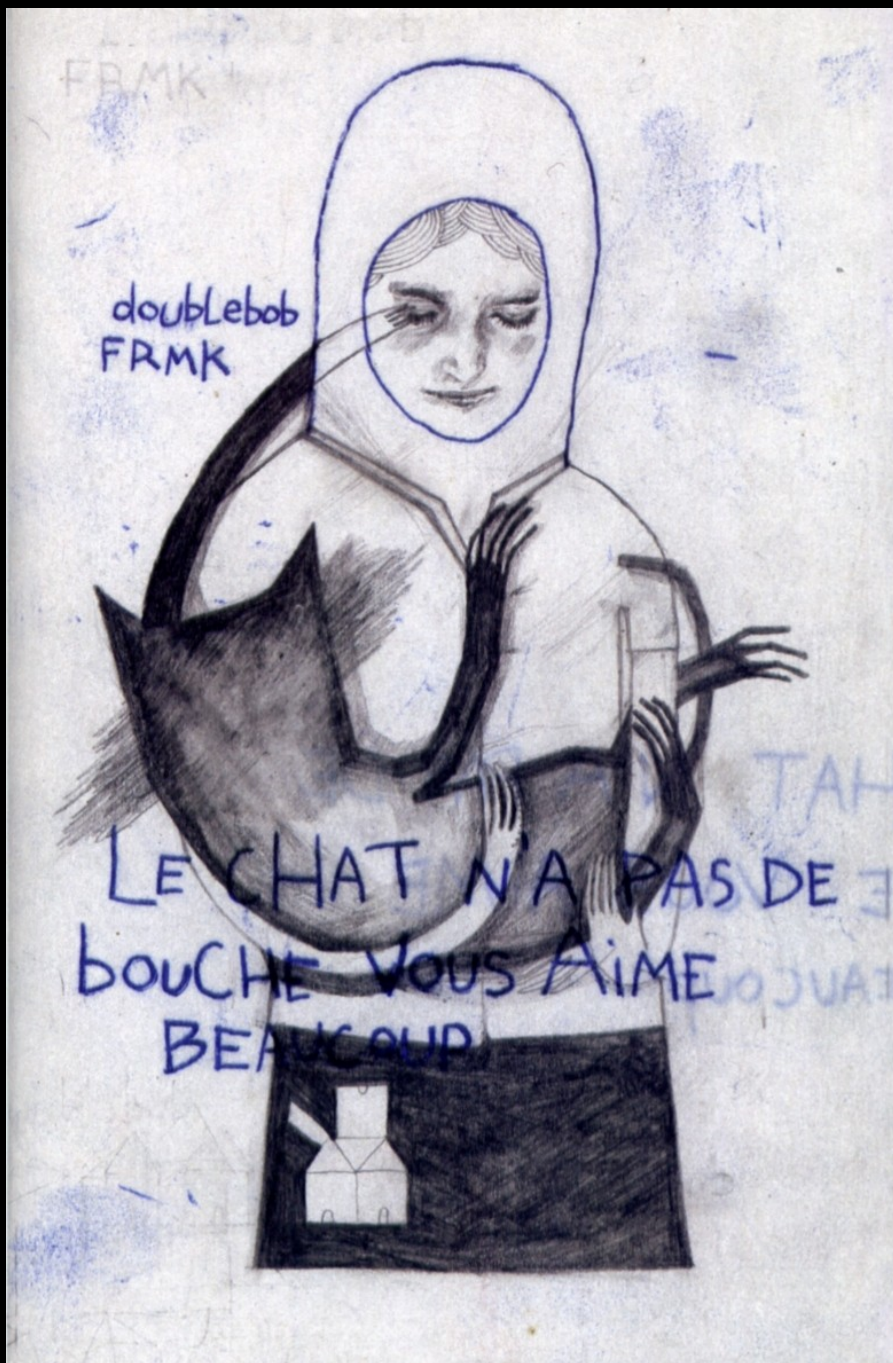 FRMK
doubLebob
FRMK
LE CHAT N'A PAS DE
bOUCHE VOUS AiME
BEAUCOUP